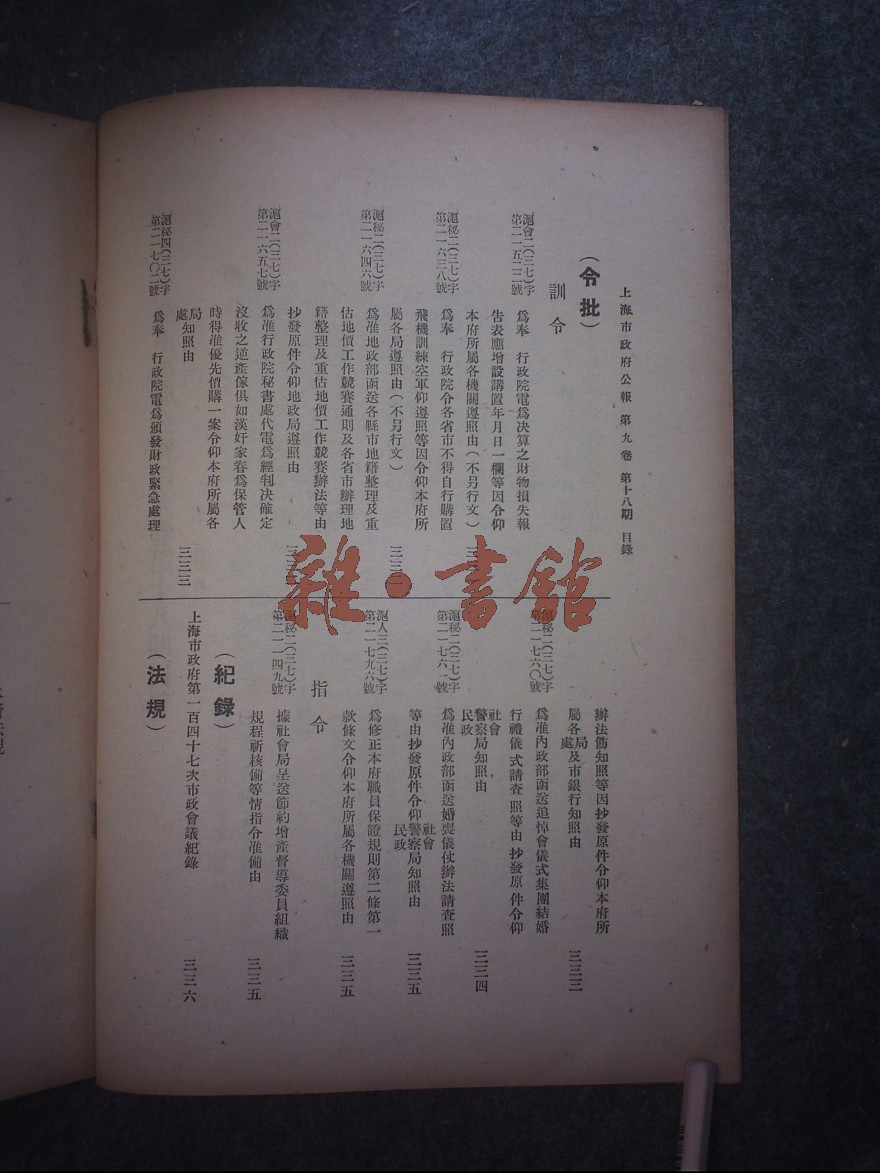 上海市政府公報 第九卷 第十八期 目錄
(令批)
訓令
滬會二(三七)字
第二一五二二號
爲奉 行政院電爲決算之財物損失報
告表應增設購置年月日一欄等因令仰
本府所屬各機關遵照由(不另行文)
滬秘二(三七)字
第二一六三八號
爲奉 行政院令各省市不得自行購置
飛機訓練空軍仰遵照等因令仰本府所
屬各局遵照由(不另行文)
滬秘二(三七)字
第二一六四六號
爲准地政部函送各縣市地籍整理及重
估地價工作競賽通則及各省市辦理地
籍整理及重估地價工作競賽辦法等由
抄發原件令仰地政局遵照由
滬會二(三七)字
第二一六五七號
爲准行政院秘書處代電爲經判決確定
沒收之逆產傢俱如漢奸家眷爲保管人
時得准優先價購一案令仰本府所屬各
局
處知照由
三三三
滬秘四(三七)字
第二一七〇二號
爲奉 行政院電爲頒發財政緊急處理
辦法飭知照等因抄發原件令仰本府所
屬各局
處及市銀行知照由
三三三
滬秘二(三七)字
第二一七六〇號
爲准內政部函送追悼會儀式集團結婚
行禮儀式請查照等由抄發原件令仰
社會
警察局知照由
民政
三三四
滬秘二(三七)字
第二一七六一號
爲准內政部函送婚喪儀仗辦法請查照
等由抄發原件令仰
社會
警察局知照由
民政
三三五
滬人三(三七)字
第二一七九六號
爲修正本府職員保證規則第二條第一
款條文令仰本府所屬各機關遵照由
三三五
指令
滬秘二(三七)字
第二一一四九號
據社會局呈送節約增產督導委員組織
規程祈核備等情指令准備由
三三五
(紀錄)
上海市政府第一百四十七次市政會議紀錄
三三六
(法規)
雜·書館